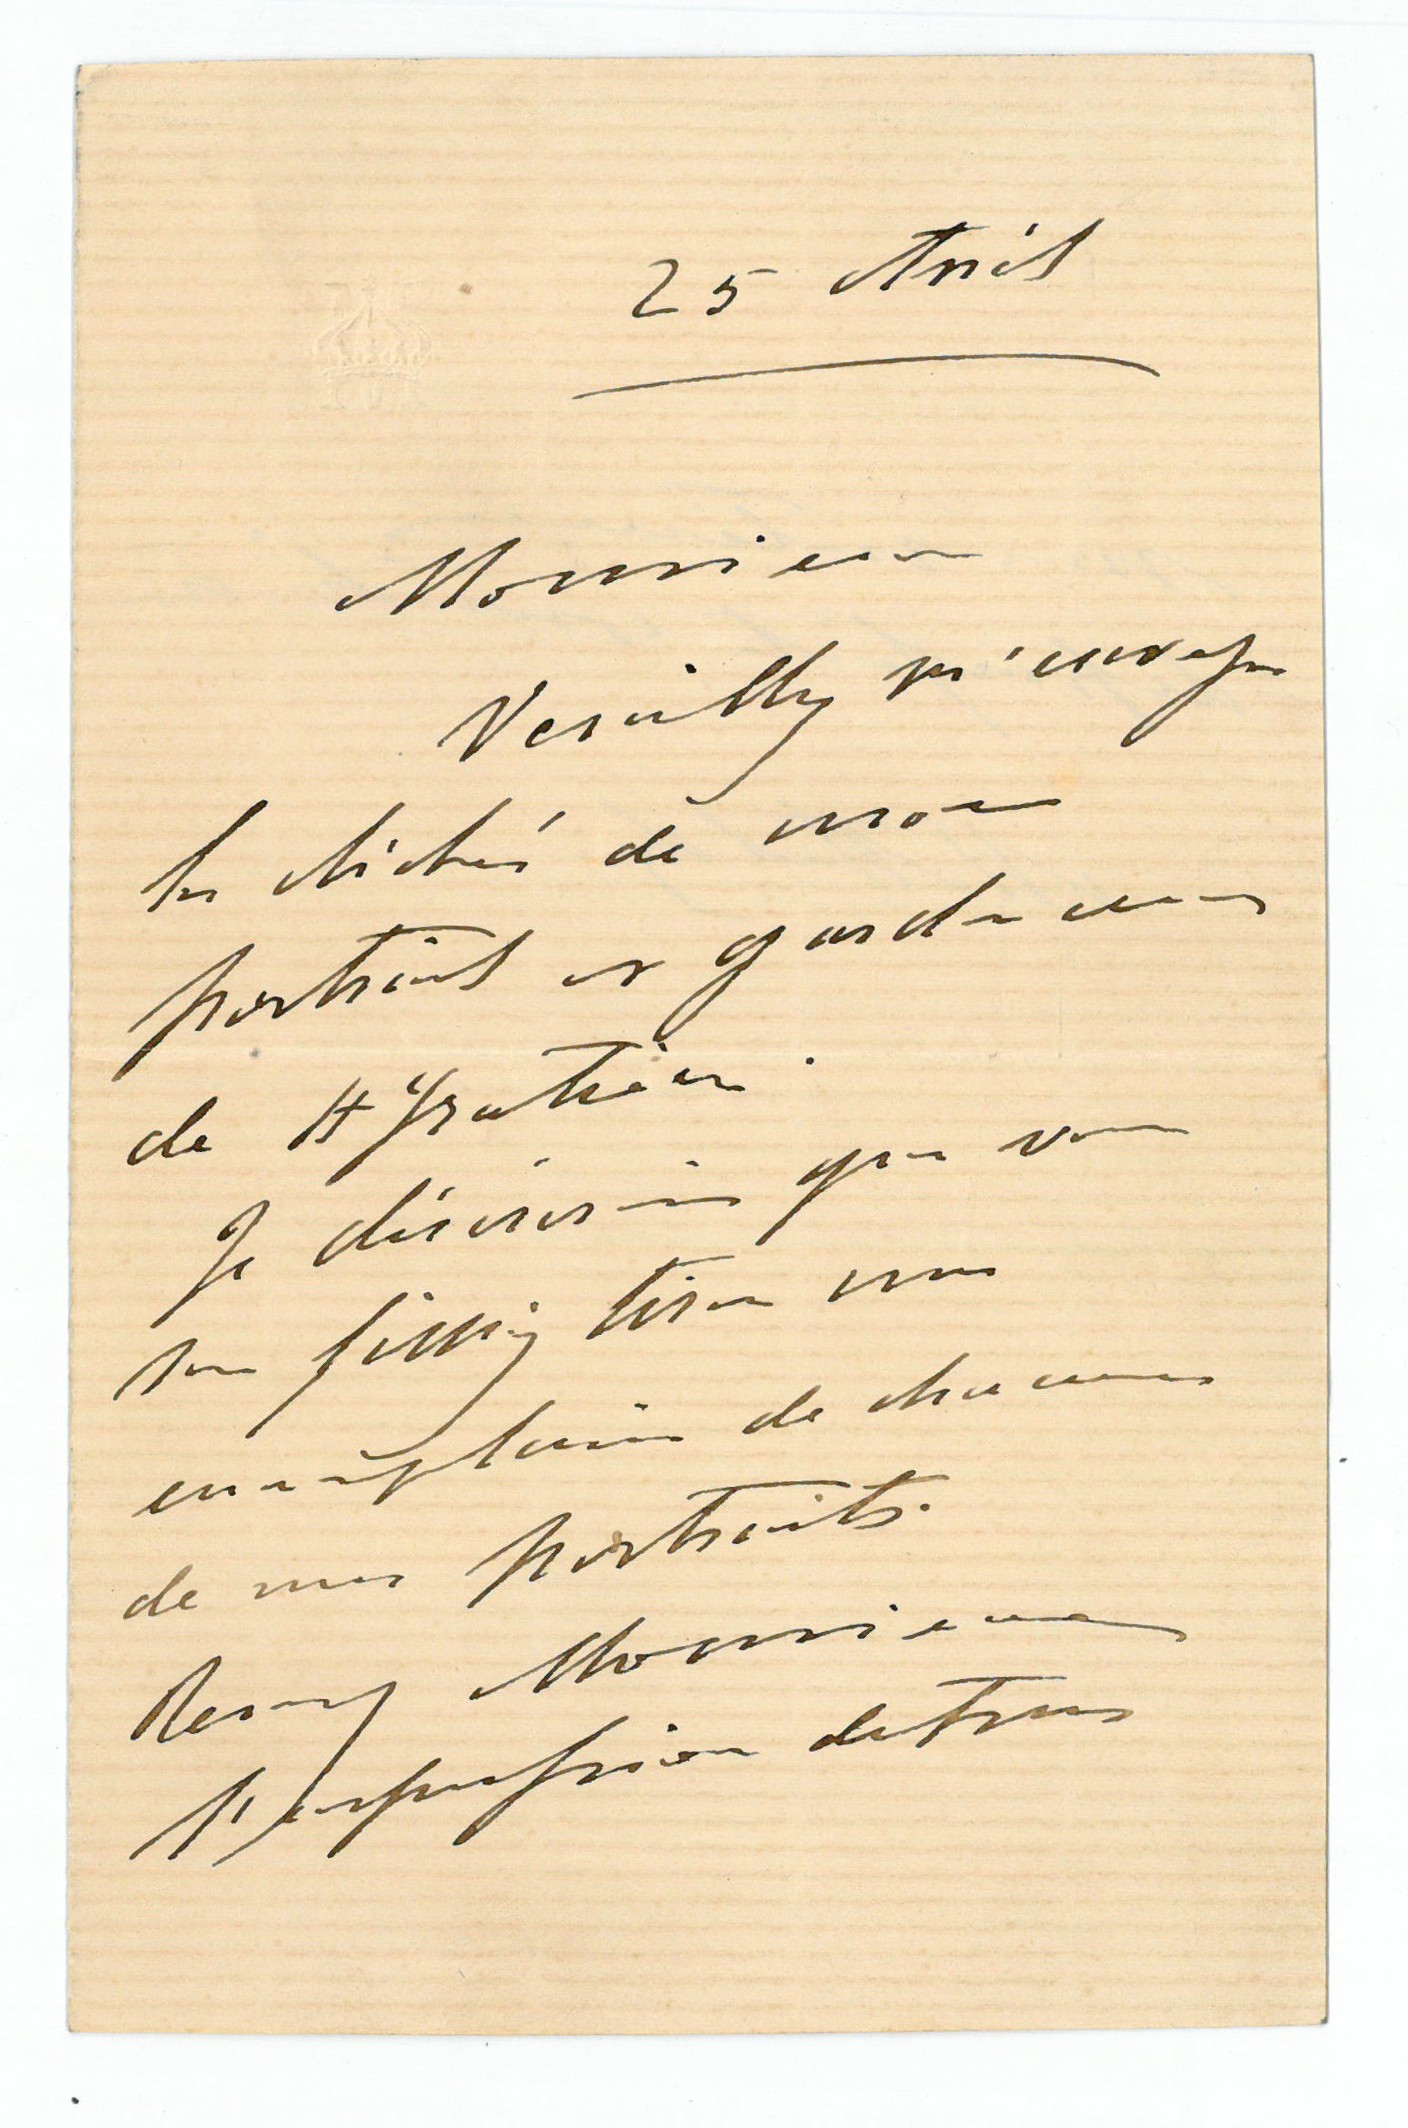 25 Avril
Monsieur
Veuillez m'envoyer
les clichés de mon
portrait et garder ceux
de
Je désirerais que vous
me fissiez tirer une
exemplaire de chacun
de mes portraits.
Recevez Monsieur
l'expression de tous